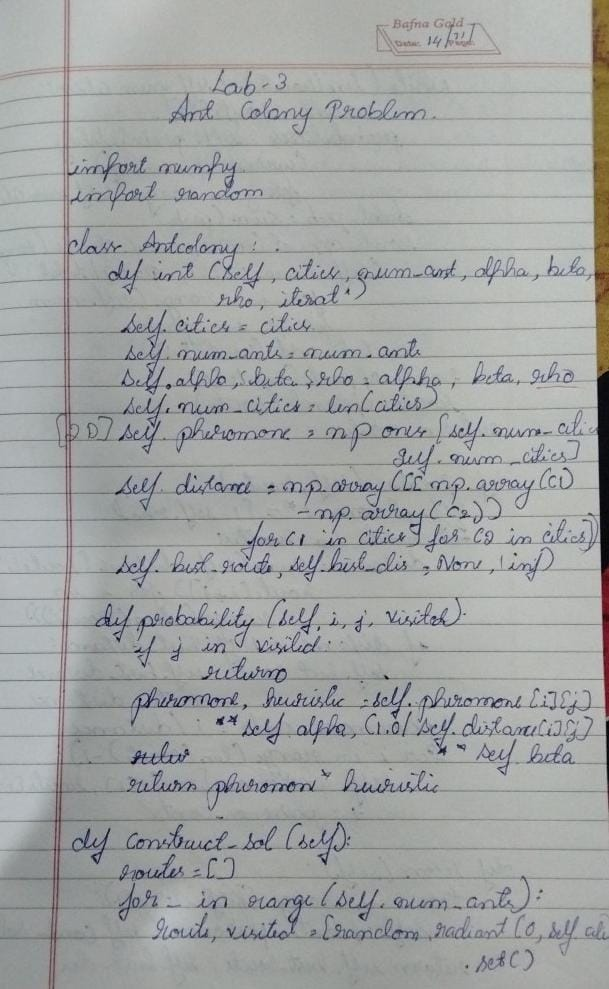 Bafna Gold
Date: 14/11 Page:
Lab-3
Ant Colony Problem.
import numpy
import random
class Antcolony:
def int (self, cities, num_ant, alpha, beta,
rho, iterat')
self.cities = cities
self.num_ants = num_ants
self.alpha, beta, rho = alpha, beta, rho
self.num_cities = len(cities)
[2D] self.pheromone = np ones [self.num_citi
self.num_cities]
self.distance = np.array([[ np.array(C1)
- np.array(C2))
for C1 in cities] for C2 in cities])
self.best_route, self.best_dis = None, 'inf)
def probability (self, i, j, visited):
if j in visited:
return 0
pheromone, heuristic = self.pheromone [i][j]
** self alpha, (1.0/ self.distance[i][j]
** self beta
return pheromon * heuristic
def construct_sol (self):
routes = []
for _ in range (self.num_ants):
route, visited = [random radiant (0, self.
set()